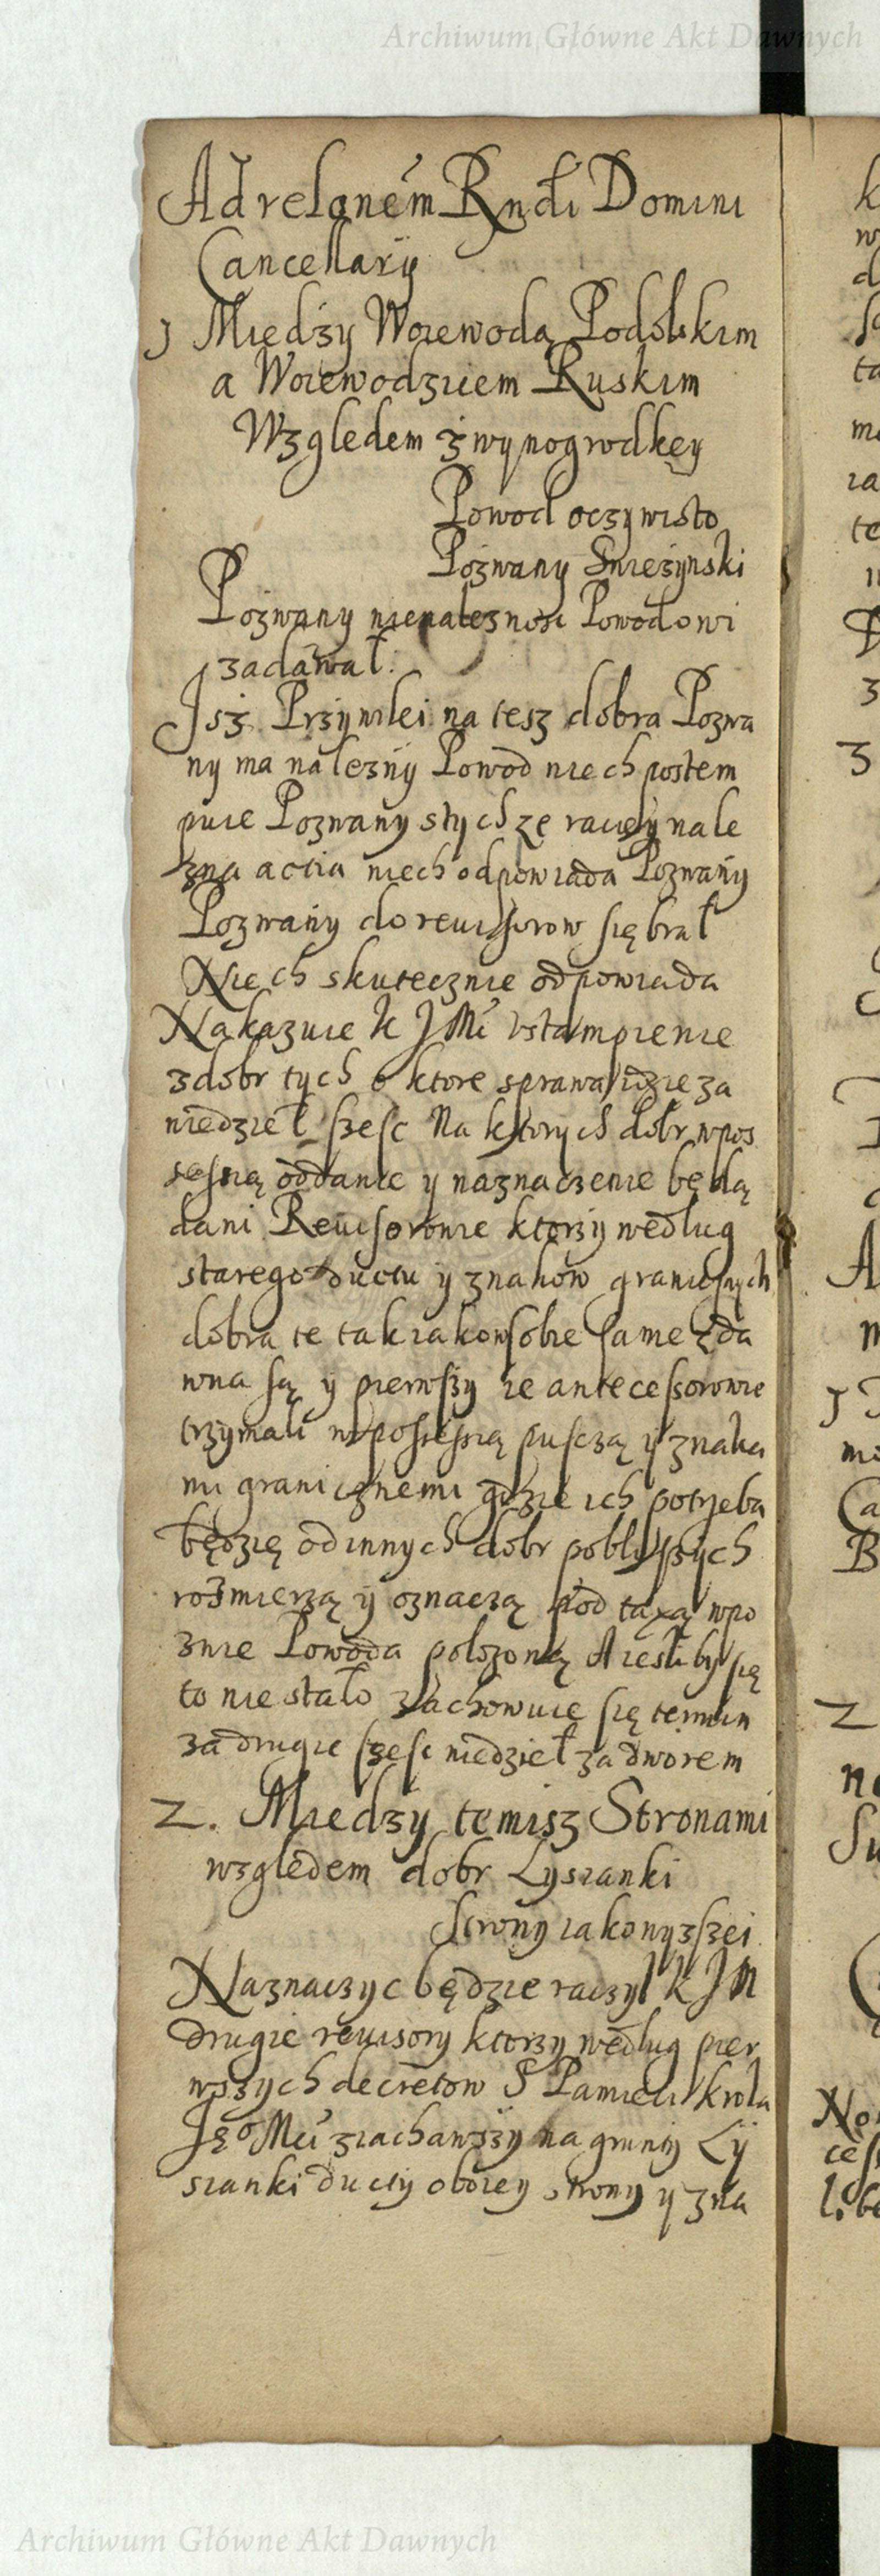 Archiwum Główne Akt Dawnych
Ad relanem Rndi Domini
Cancellarÿ
1 Miedzy Woiewodą Podolskim
a Woiewodziem Ruskim
Względem zwynogrodkęy
Powod oczywisto
Pozwany Snieżynski
Pozwany nienalezność Powodowi
zadawał:
Isz Przywilei na tesz dobra Pozwa
ny ma należnÿ Powod niech postem
puie Pozwany stych ze raciey nale
zna actia niech odpowiada Pozwany
Pozwany do reuisorow się brał
Niech skutecznie odpowiada
Nakazuie K J Mć vstampienie
z dobr tych o ktore sprawa idzie za
niedzieł szesc Na ktorych dobr w pos
sesią oddanie y naznaczenie będą
dani Reuisorowie ktorzy według
starego ductu y znakow granicznych
dobra te tak iako w sobie same zda
wna są y pierwszy ie antecessorowie
trzymali w possessią pusczą y znaka
mi granicznemi gdzie ich potrzeba
będzię od innych dobr poblisszych
rozmierzą y oznaczą pod taxą w po
zwie Powoda polozoną A iesliby się
to nie stało zachowuie się termin
za drugie szesc niedzieł za dworem
2. Miedzy temisz Stronami
względem dobr Lysianki
Strony iako wyzszei
Naznaczyc będzie raczył K J M
drugie reuisory ktorzy według pier
wszych decretow S Pamieci krola
Jeº Mći ziachawszy na grunty Ly
sianki ducty oboiey strony y zna
Archiwum Główne Akt Dawnych